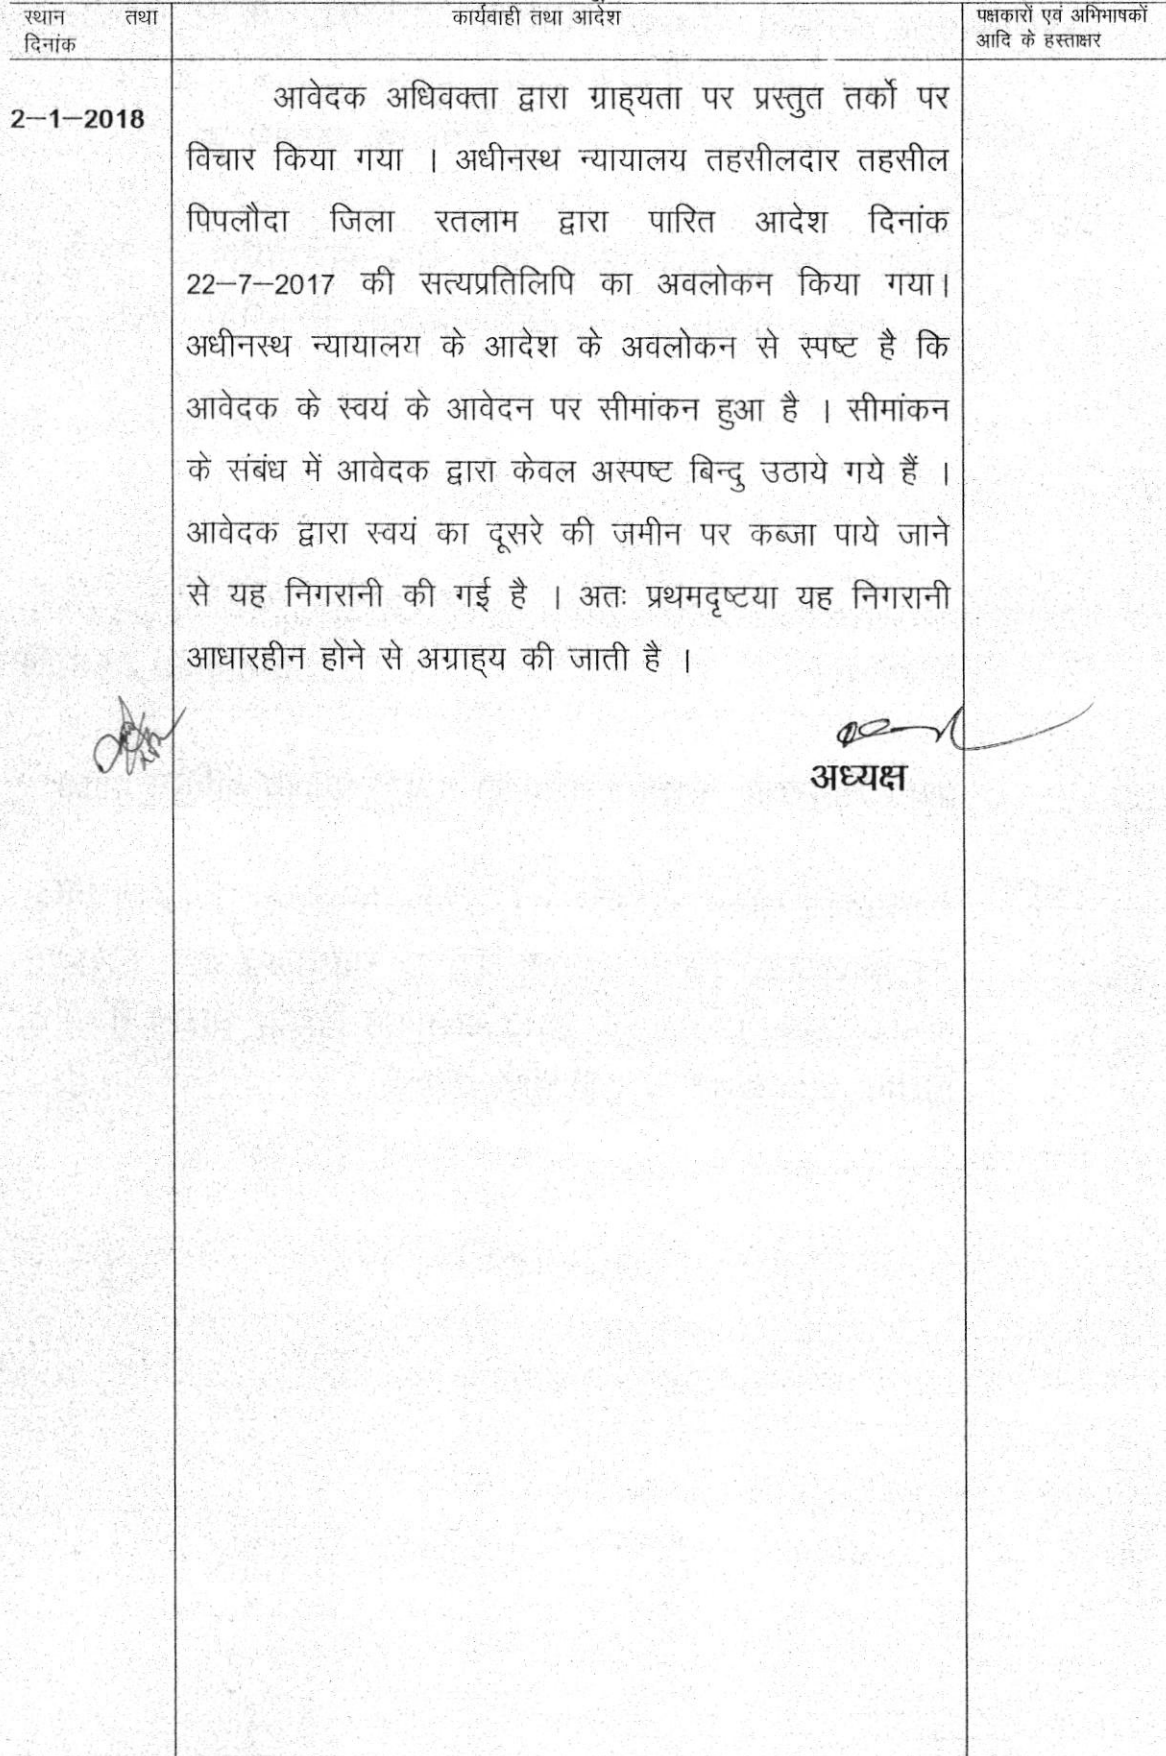 स्थान तथा
दिनांक
कार्यवाही तथा आदेश
पक्षकारों एवं अभिभाषकों
आदि के हस्ताक्षर
2-1-2018
आवेदक अधिवक्ता द्वारा ग्राह्यता पर प्रस्तुत तर्को पर
विचार किया गया । अधीनस्थ न्यायालय तहसीलदार तहसील
पिपलौदा जिला रतलाम द्वारा पारित आदेश दिनांक
22-7-2017 की सत्यप्रतिलिपि का अवलोकन किया गया।
अधीनस्थ न्यायालय के आदेश के अवलोकन से स्पष्ट है कि
आवेदक के स्वयं के आवेदन पर सीमांकन हुआ है । सीमांकन
के संबंध में आवेदक द्वारा केवल अस्पष्ट बिन्दु उठाये गये हैं ।
आवेदक द्वारा स्वयं का दूसरे की ज़मीन पर कब्जा पाये जाने
से यह निगरानी की गई है । अतः प्रथमदृष्टया यह निगरानी
आधारहीन होने से अग्राह्य की जाती है ।
अध्यक्ष